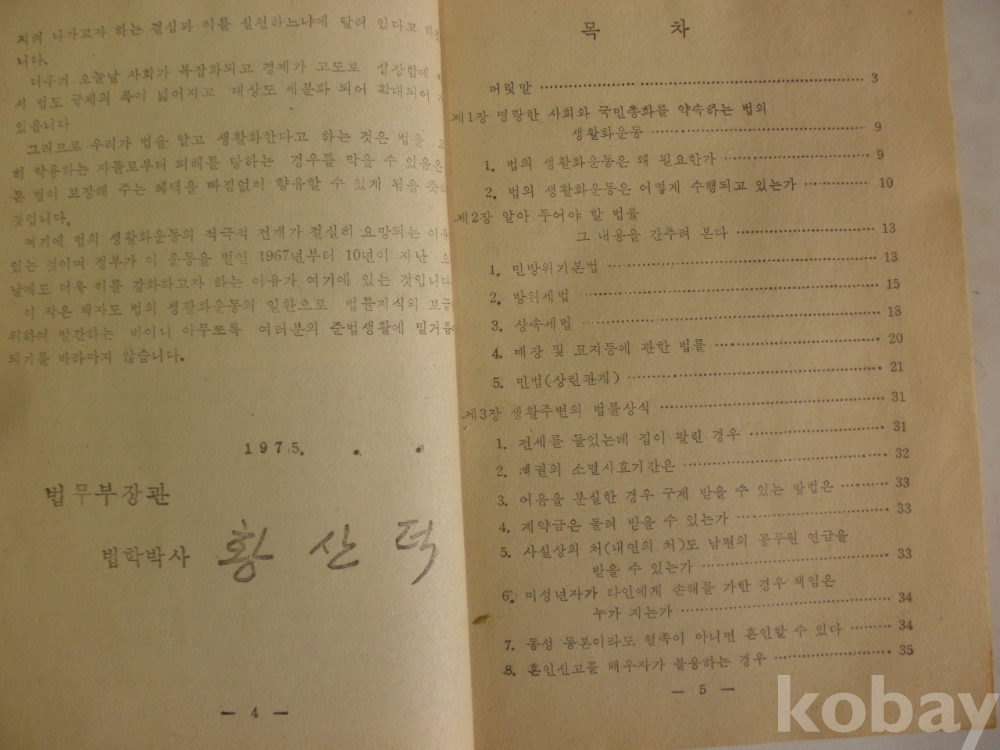 지켜 나가고자 하는 결심과 이를 실천하느냐에 달려 있다고
니다.
더우기 오늘날 사회가 복잡화되고 경제가 고도로 성장함에
서 법도 규제의 폭이 넓어지고 대상도 세분화 되어 확대되어
있읍니다
그러므로 우리가 법을 알고 생활화한다고 하는 것은 법을
히 악용하는 자들로부터 피해를 당하는 경우를 막을 수 있음은
론 법이 보장해 주는 혜택을 빠짐없이 향유할 수 있게 됨을 뜻하
것입니다.
여기에 법의 생활화운동의 적극적 전개가 절실히 요망되는 이유
있는 것이며 정부가 이 운동을 벌인 1967년부터 10년이 지난 오
날에도 더욱 이를 강화하고자 하는 이유가 여기에 있는 것입니다
이 작은 책자도 법의 생활화운동의 일환으로 법률지식의 보급
위하여 발간하는 바이니 아무쪼록 여러분의 준법생활에 밑거름
되기를 바라마지 않습니다.
1975. . .
법무부장관
법학박사 황산덕
— 4 —
목 차
머릿말 3
제1장 명랑한 사회와 국민총화를 약속하는 법의
생활화운동 9
1. 법의 생활화운동은 왜 필요한가 9
2. 법의 생활화운동은 어떻게 수행되고 있는가 10
제2장 알아 두어야 할 법률
그 내용을 간추려 본다 13
1. 민방위기본법 13
2. 방위세법 15
3. 상속세법 18
4. 매장 및 묘지등에 관한 법률 20
5. 민법(상린관계) 21
제3장 생활주변의 법률상식 31
1. 전세를 들었는데 집이 팔린 경우 31
2. 채권의 소멸시효기간은 32
3. 어음을 분실한 경우 구제 받을 수 있는 방법은 33
4. 계약금은 돌려 받을 수 있는가 33
5. 사실상의 처(내연의 처)도 남편의 공무원 연금을
받을 수 있는가 33
6. 미성년자가 타인에게 손해를 가한 경우 책임은
누가 지는가 34
7. 동성 동본이라도 혈족이 아니면 혼인할 수 있다 34
8. 혼인신고를 배우자가 불응하는 경우 35
— 5 —
kobay